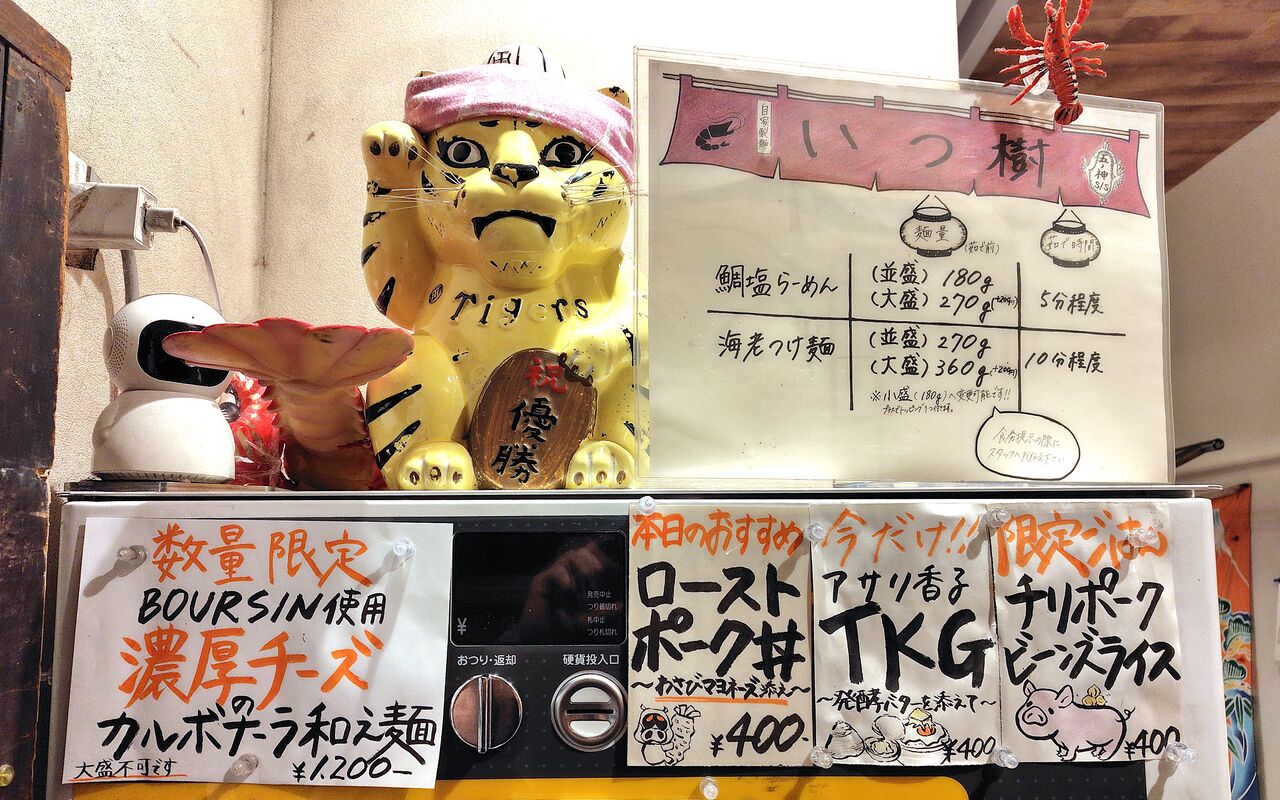 Tigers
祝
優
勝
自家製麺
いつ樹
五ノ神
S/S
麺量
(茹で前)
茹で時間
鯛塩らーめん
(並盛) 180g
(大盛) 270g
5分程度
海老つけ麺
(並盛) 270g
(大盛) 360g
10分程度
※小盛(180g)へ変更可能です!!
食券提示の際に
スタッフへお伝え下さい
数量限定
BOURSIN使用
濃厚チーズ
の
カルボナーラ和え麺
大盛不可です
¥1.200-
発売中止
つり銭切れ
札中止
つり札切れ
¥
おつり・返却
硬貨投入口
本日のおすすめ
ロースト
ポーク丼
〜わさびマヨネーズ添え〜
¥400-
今だけ!!
アサリ香子
TKG
〜発酵バターを添えて〜
¥400
限定ごはん
チリポーク
ビーンズライス
¥400